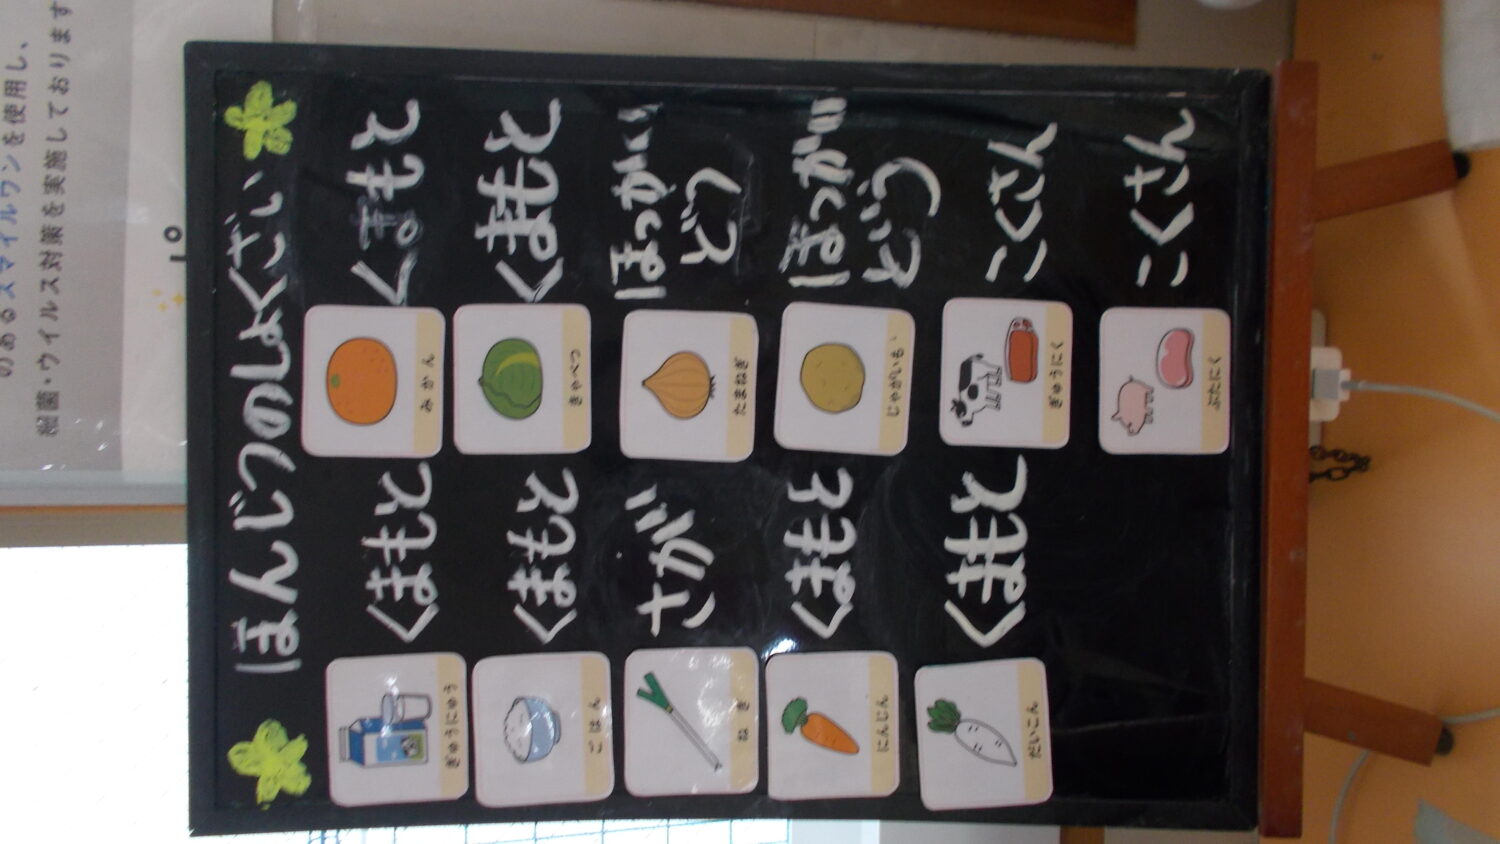 のあるスマイルワンを使用し、
細菌・ウイルス対策を実施しております
ほんじつのしょくざい
ぎゅうにゅう くまもと
みかん くまもと
ごはん くまもと
きゃべつ くまもと
ねぎ さが
たまねぎ ほっかい
どう
にんじん くまもと
じゃがいも ほっかい
どう
だいこん くまもと
ぎゅうにく こくさん
ぶたにく こくさん